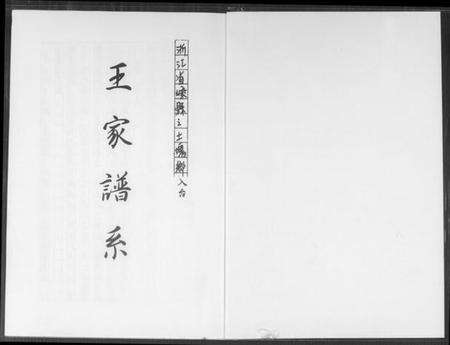 浙江省嵊縣三土場鄉入台
王家譜系